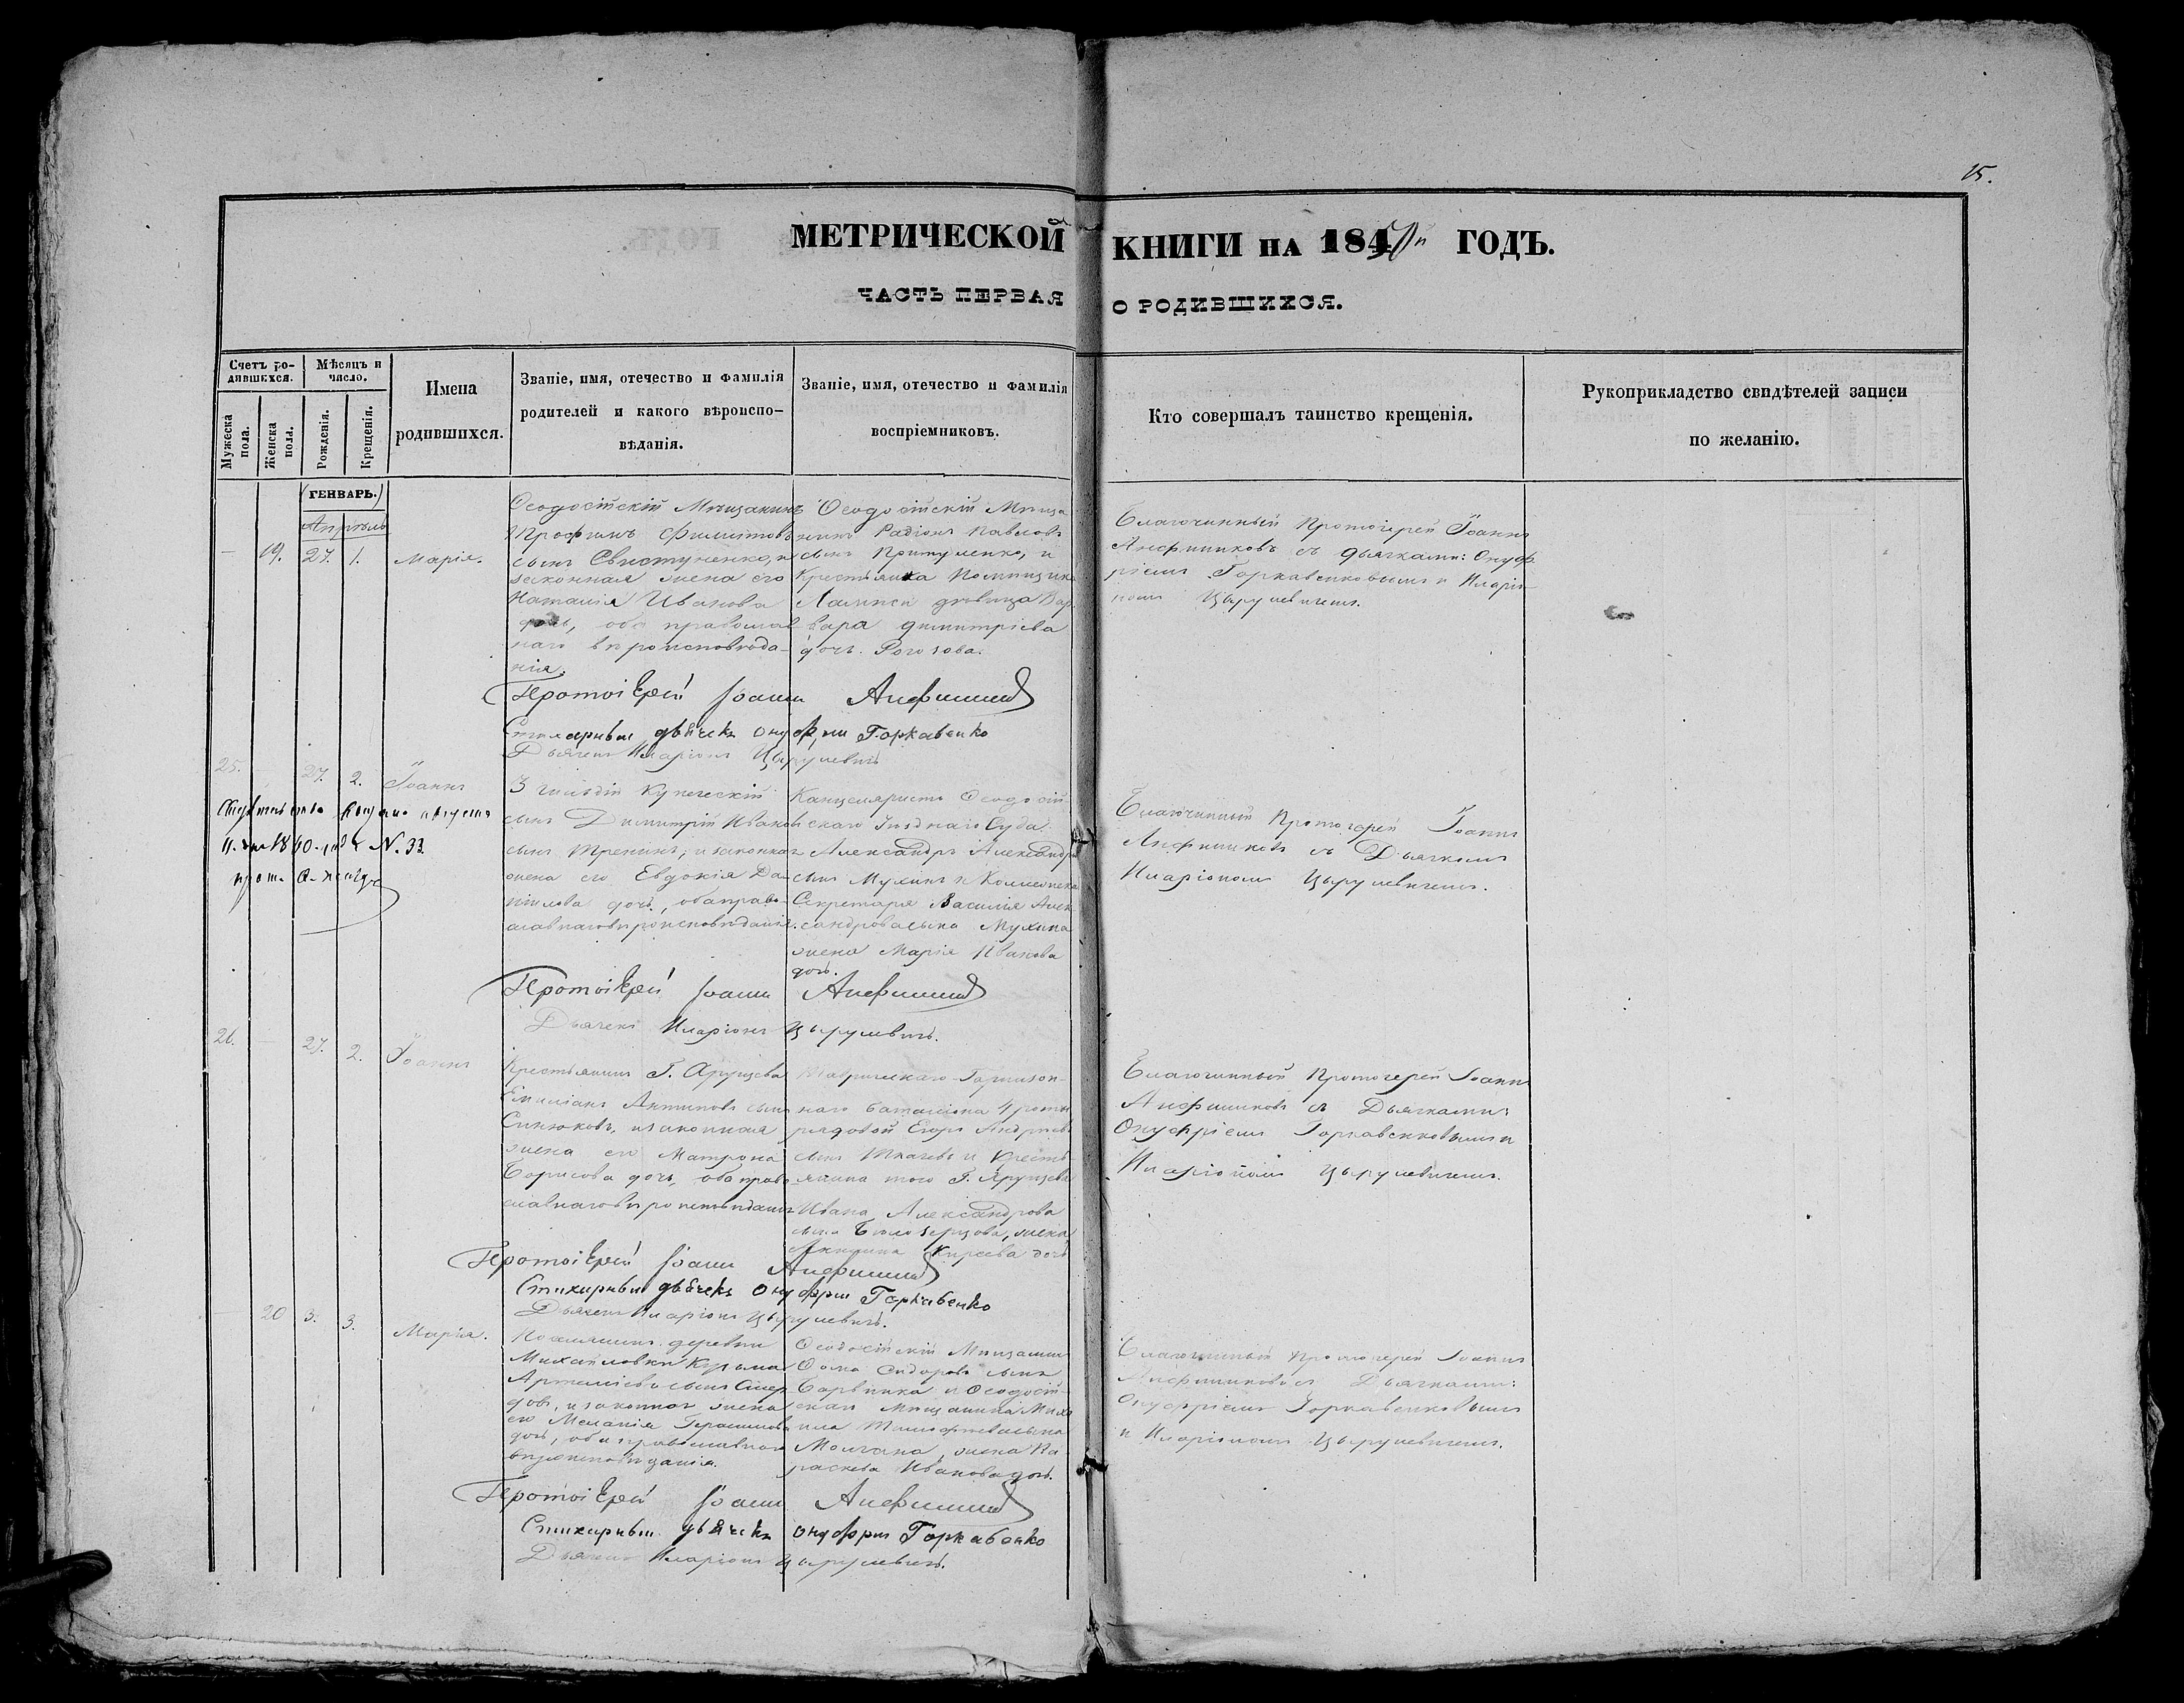 15.
МЕТРИЧЕСКОЙ КНИГИ НА 1850й ГОДЪ.
ЧАСТЬ ПЕРВАЯ О РОДИВШИХСЯ.
Счетъ родившихся.
Мужеска пола.
Женска пола.
Мѣсяцъ и число.
Рожденія.
Крещенія.
Имена родившихся.
Званіе, имя, отечество и фамилія
родителей и какого вѣроиспо-
вѣданія.
Званіе, имя, отечество и фамилія
воспріемниковъ.
Кто совершалъ таинство крещенія.
Рукоприкладство свидѣтелей записи
по желанію.
(ГЕНВАРЬ.)
Апрѣль
19. 27. 1. Марія.
Ѳеодосійскій Мѣщанинъ
Трофимъ Филиповъ
сынъ Свистуненко, и
законная жена его
Наталія Иванова
дочь, оба православ
наго вѣроисповѣда-
нія.
Ѳеодосійскій Мѣща
нинъ Радіонъ Павловъ
сынъ Притуленко, и
Крестьянка Помѣщика
дѣвица Вар
вара Димитріева
дочь Рогозова.
Благочинный Протоіерей Іоаннъ
Анфимиковъ съ дьячками: Онуф
ріемъ Горкавенковымъ и Иларіо-
номъ Цырулевичемъ.
Протоіерей Іоаннъ
Стихарный дьячекъ Онуфрій Горкавенко
Дьячекъ Иларіонъ Цырулевичъ
25. 27. 2. Іоаннъ
августа
N. 33.
3 гильдіи Купеческій
сынъ Димитрій Ивановъ
сынъ и законная
жена его Евдокія Да-
нилова дочь, оба право-
славнаго вѣроисповѣданія.
Канцеляристъ Ѳеодосій-
скаго Уѣзднаго Суда
Александръ Александр
сынъ Мухинъ и Коллежска
Секретаря Василія Алек
сандрова сына Мухина
жена Марія Иванова
дочь.
Благочинный Протоіерей Іоаннъ
Анфимиковъ съ Дьячкомъ
Иларіономъ Цырулевичемъ.
Протоіерей Іоаннъ
Дьячекъ Иларіонъ Цырулевичъ.
26. 27. 2. Іоаннъ
Крестьянинъ Г.
Емиліанъ Антиповъ сынъ
Синюковъ, и законная
жена его Матрона
Борисова дочь, оба право
славнаго вѣроисповѣданія
Таврическаго Гарнизон-
наго баталіона 4 роты
рядовой Егоръ Андреевъ
сынъ Ткачевъ и Кресть
янина того Г.
Ивана Александрова
сына Бѣлозерцова, жена
Кирѣева дочь
Благочинный Протоіерей Іоаннъ
Анфимиковъ съ Дьячками:
Онуфріемъ Горкавенковымъ и
Иларіономъ Цырулевичемъ.
Протоіерей Іоаннъ
Стихарный дьячекъ Онуфрій Горкавенко
Дьячекъ Иларіонъ Цырулевичъ.
20 3. 3. Марія.
Поселянинъ деревни
Михайловки Кузьма
Артеміевъ сынъ
и законная жена
его Меланія Герасимова
дочь, оба православнаго
вѣроисповѣданія.
Ѳеодосійскій Мѣщанинъ
Ѳома Сидоровъ сынъ
Барвинка и Ѳеодосій-
скаго Мѣщанина Миха
ила Тимофѣева сына
Молчана, жена Па-
раскева Иванова дочь.
Благочинный Протоіерей Іоаннъ
Анфимиковъ съ Дьячками:
Онуфріемъ Горкавенковымъ
и Иларіономъ Цырулевичемъ.
Протоіерей Іоаннъ
Стихарный дьячекъ Онуфрій Горкавенко
Дьячекъ Иларіонъ Цырулевичъ.